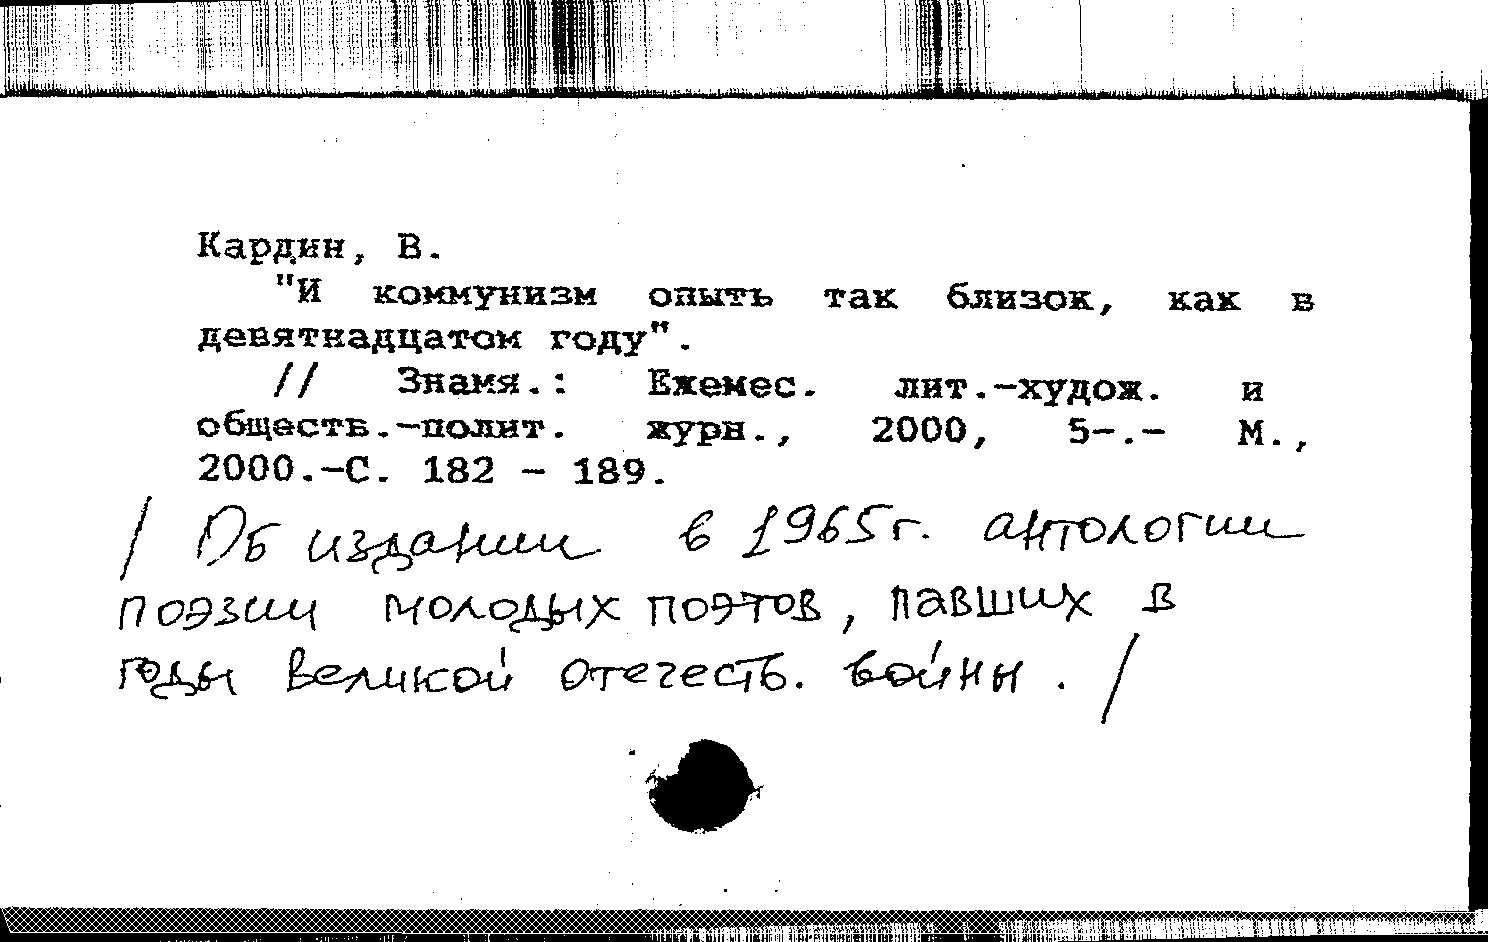 Кардин, В.
"И коммунизм опыть так близок, как в
девятнадцатом году".
// Знамя.: Ежемес. лит.-худож. и
обществ.-полит. журн., 2000, 5-.- М.,
2000.-С. 182 - 189.
/ Об издании в 1965г. антологии
поэзии молодых поэтов, павших в
годы Великой отечеств. войны. /